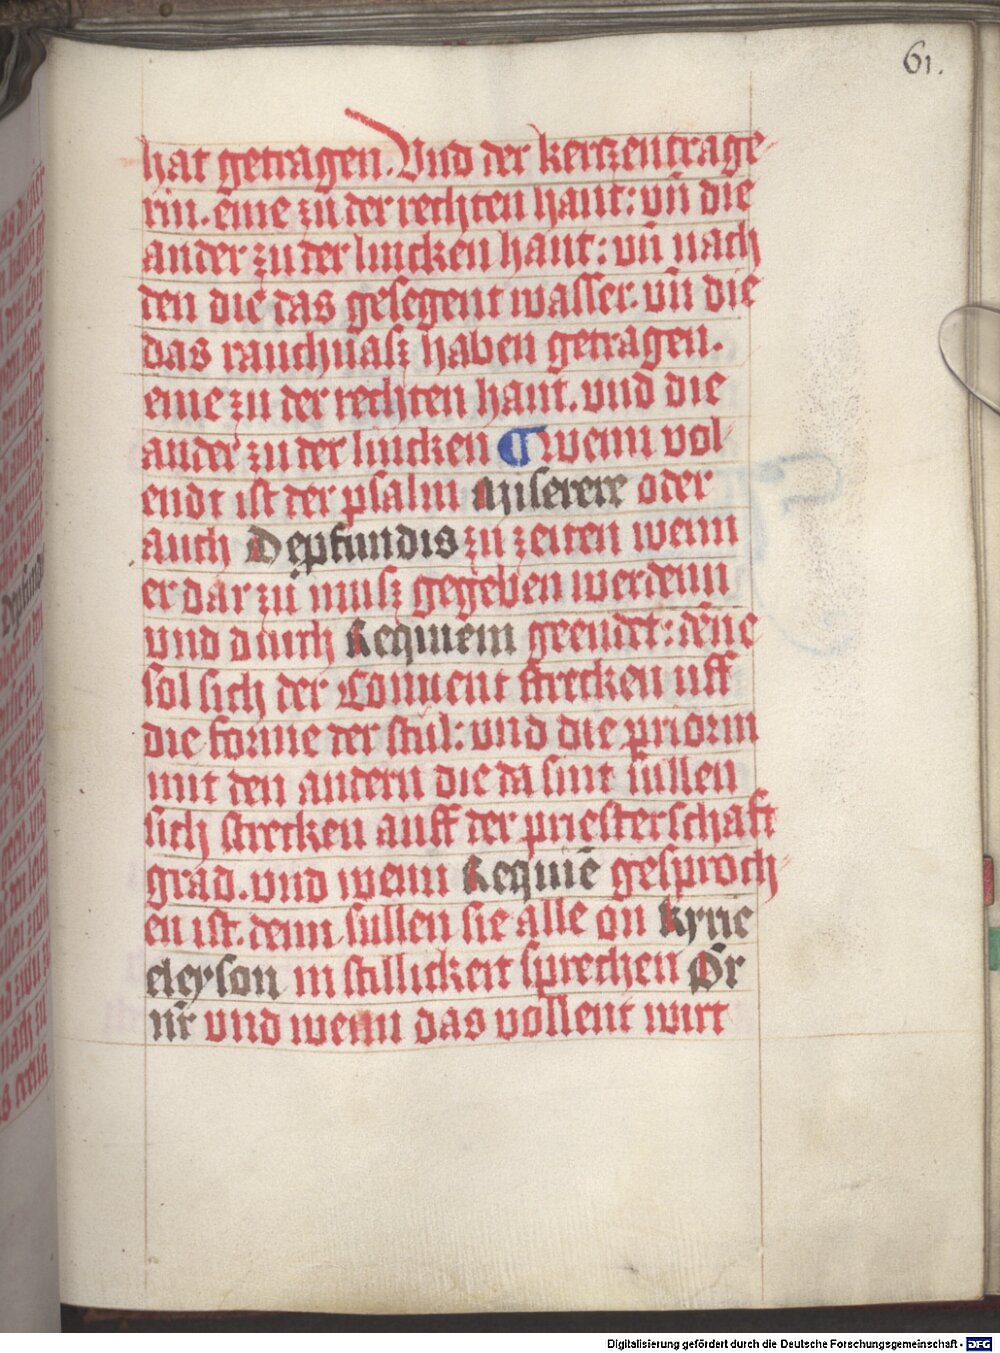 61.
hat getragen. Vnd der kertzentrage
rin. eine zu der rechten hant: vn̄ die
ander zu der lincken hant: vn̄ nach
den die das gesegent wasser. vn̄ die
das rauchuasz haben getragen.
eine zu der rechten hant. vnd die
ander zu der lincken ¶ wenn vol
endt ist der psalm Miserere oder
auch Deꝓfundis zu zeiten wenn
er dar zu musz gegeben werdenn
vnd durch Requiem geendet: dēne
sol sich der Conuent strecken uff
die forme der stul: vnd die priorin
mit den andern die da sint sullen
sich strecken auff der priesterschaft
grad. vnd wenn Requiē gesproch
en ist. denn sullen sie alle on kyrie
eleyson in stillickeit sprechen Pr̄
nr̄ vnd wenn das vollent wirt
Digitalisierung gefördert durch die Deutsche Forschungsgemeinschaft - DFG